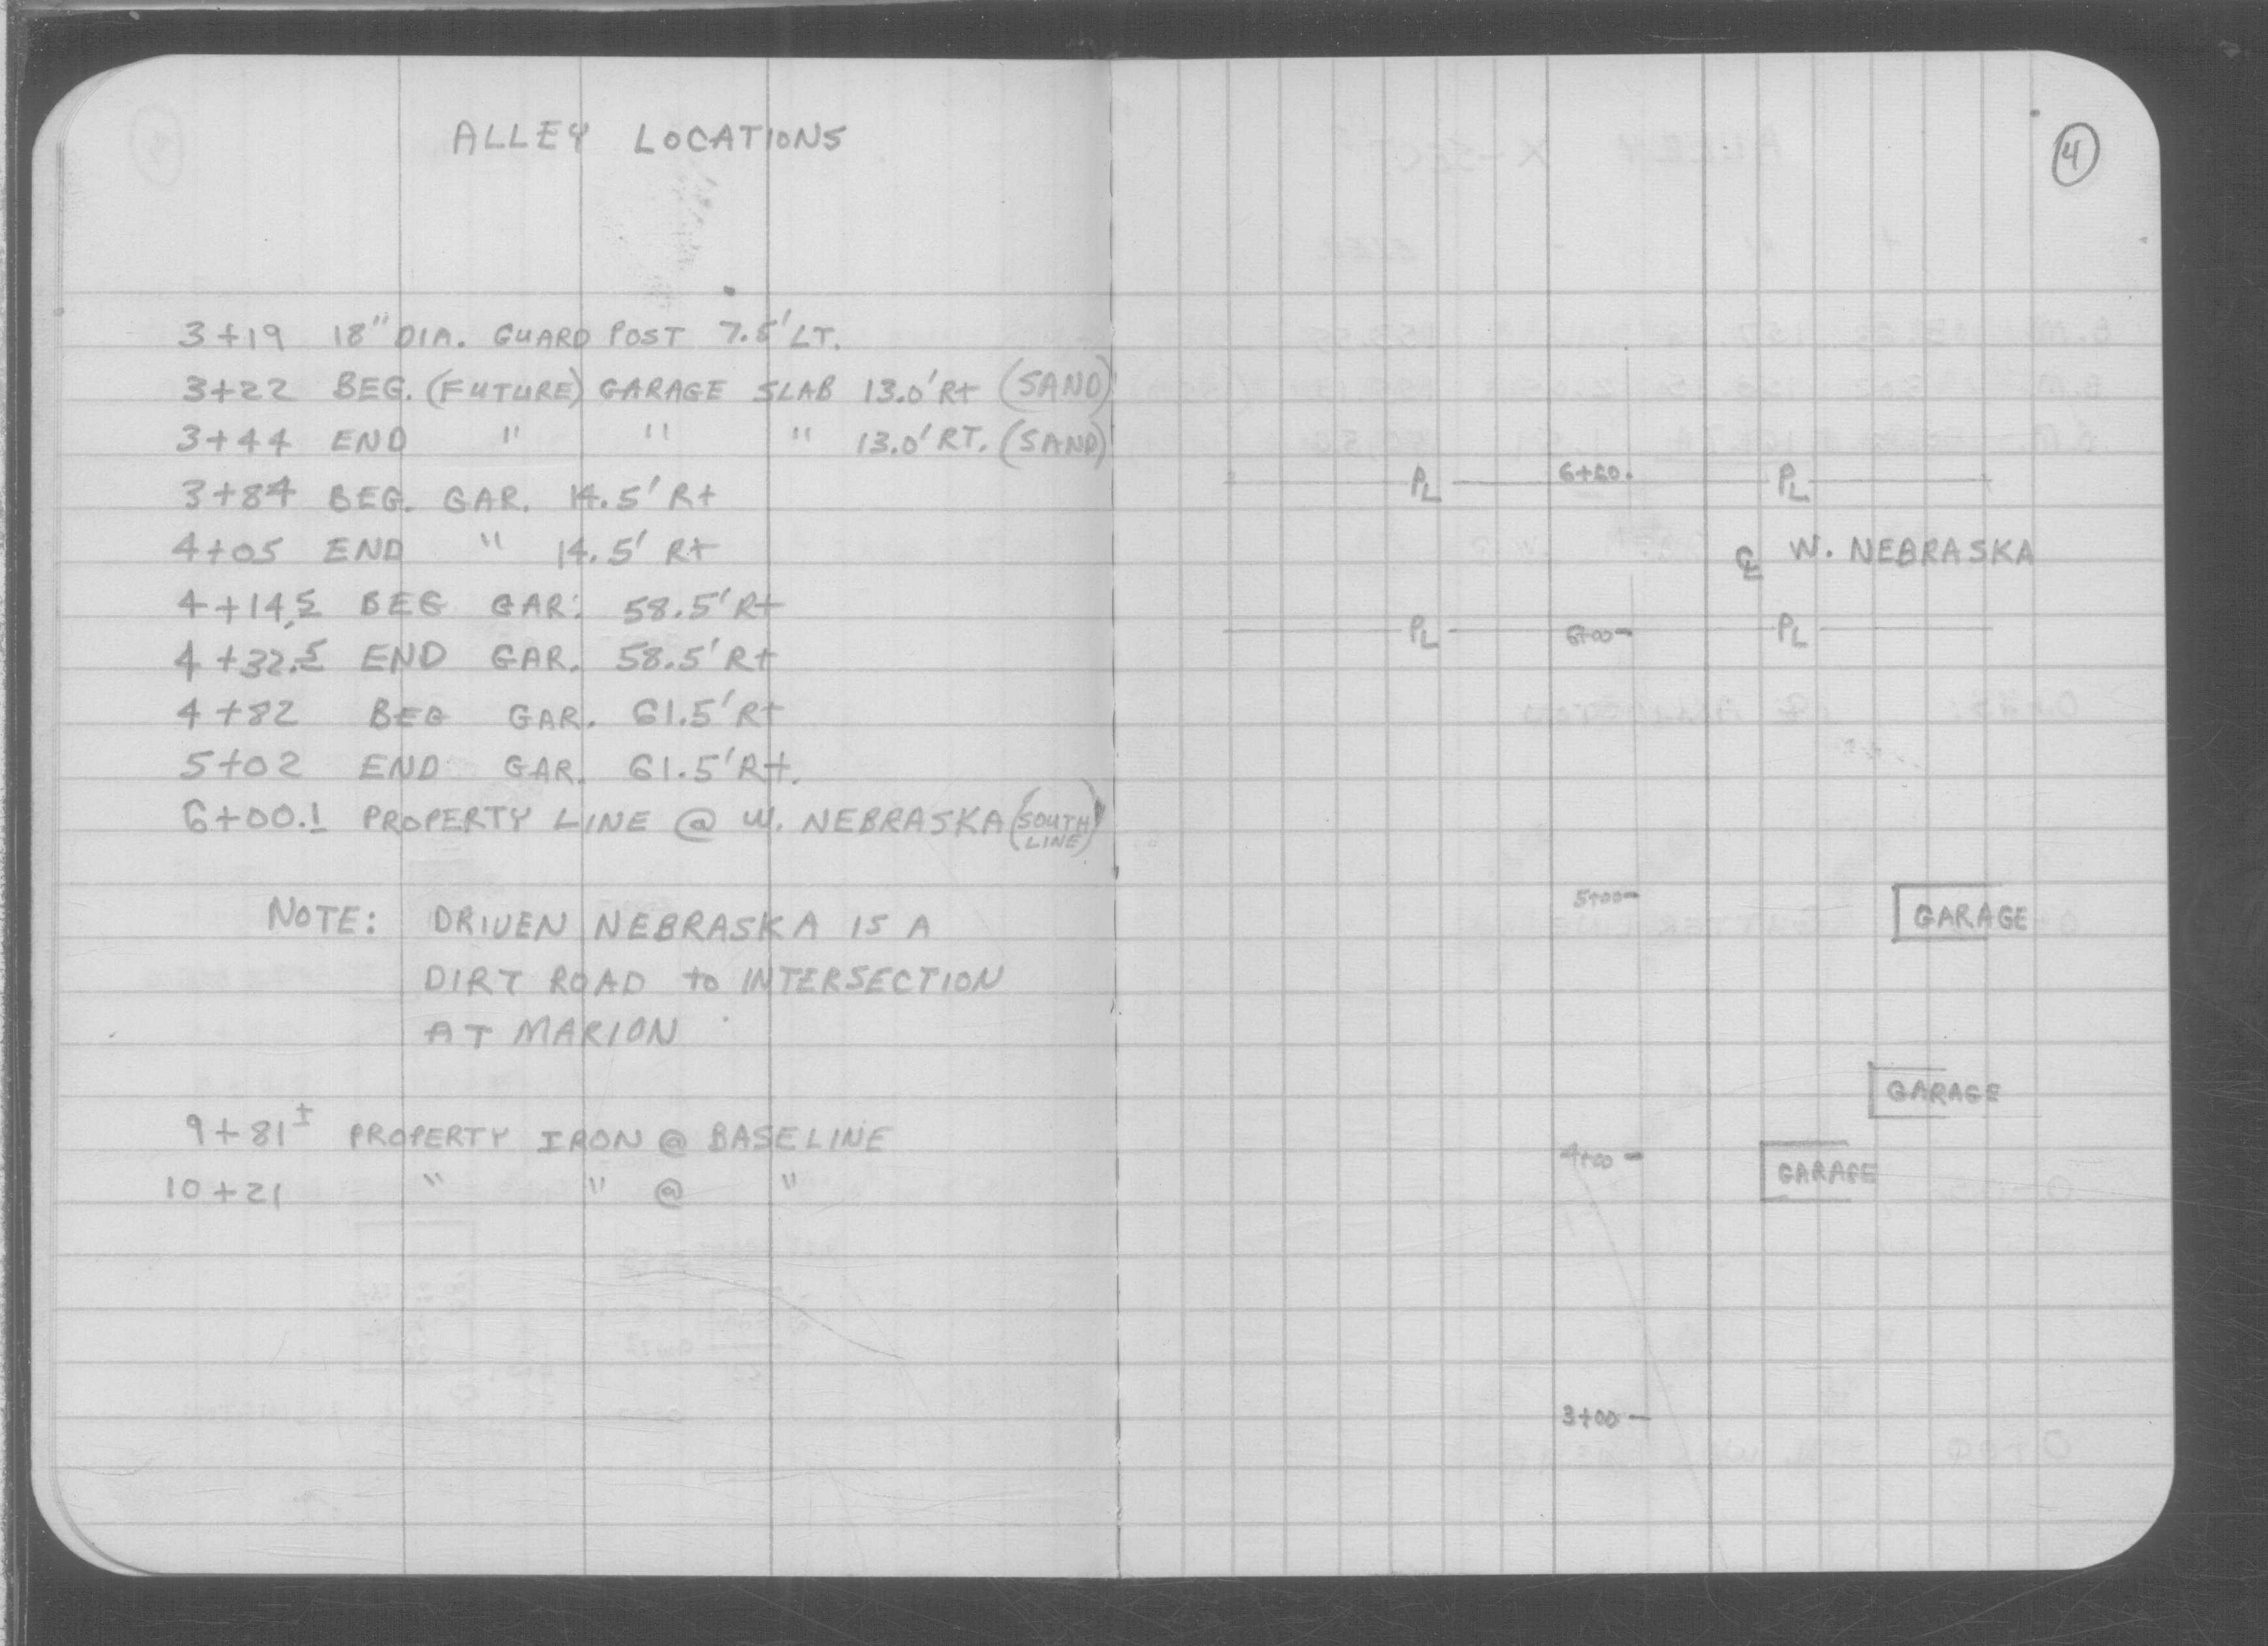 ALLEY LOCATIONS
3+19 18" DIA. GUARD POST 7.5' LT.
3+22 BEG. (FUTURE) GARAGE SLAB 13.0' Rt (SAND)
3+44 END " " " 13.0' RT. (SAND)
3+84 BEG. GAR. 14.5' Rt
4+05 END " 14.5' Rt
4+14.5 BEG GAR. 58.5' Rt
4+32.5 END GAR. 58.5' Rt
4+82 BEG GAR. 61.5' Rt
5+02 END GAR. 61.5' Rt.
6+00.1 PROPERTY LINE @ W. NEBRASKA (SOUTH LINE)
NOTE: DRIVEN NEBRASKA IS A
DIRT ROAD to INTERSECTION
AT MARION
9+81± PROPERTY IRON @ BASELINE
10+21 " " @ "
4
PL 6+60 PL
CL W. NEBRASKA
PL 6+00 PL
5+00 GARAGE
GARAGE
4+00 GARAGE
3+00